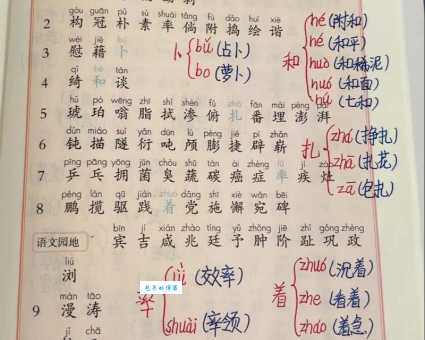 gòu guān pǔ sù shuài tǎng fù dǎo huì xié
2 构 冠 朴 素 率 倘 附 捣 绘 谐
wèi jiè
3 慰 藉 卜
qǐ tán
4 绮 和 谈
hǔ pò wēng zhī shì shèn fǔ fān mái péng pài
5 琥 珀 嗡 脂 拭 渗 俯 扎 番 埋 澎 湃
dùn miáo suì yǎn dūn lú péng jié pì zhǎn
6 钝 描 隧 衍 吨 颅 膨 捷 辟 崭
pīng pāng yōng jūn chòu shū tàn ái zhèng jí zāo
7 乒 乓 拥 菌 臭 蔬 碳 癌 症 率 疾
péng lǎn qū jiàn dǎng shī xiè wǎn bēi
8 鹏 揽 驱 践 着 党 施 懈 宛 碑
语文园地
bīn jí xián zhào tíng yǔ zhǒng jiē zhǐ gǒng zhèng
宾 吉 咸 兆 廷 予 肿 阶 趾 巩 政
liú
浏
màn tāo
9 漫 滔
jī chā
卜
bǔ (占卜)
bo (萝卜)
和
hé (附和)
hé (和平)
huò (和稀泥)
huó (和面)
hú (七和)
扎
zhá (挣扎)
zhā (扎花)
zā (包扎)
率
lǜ (效率)
shuài (率领)
着
zhuó (沉着)
zhe (看着)
zháo (着急)